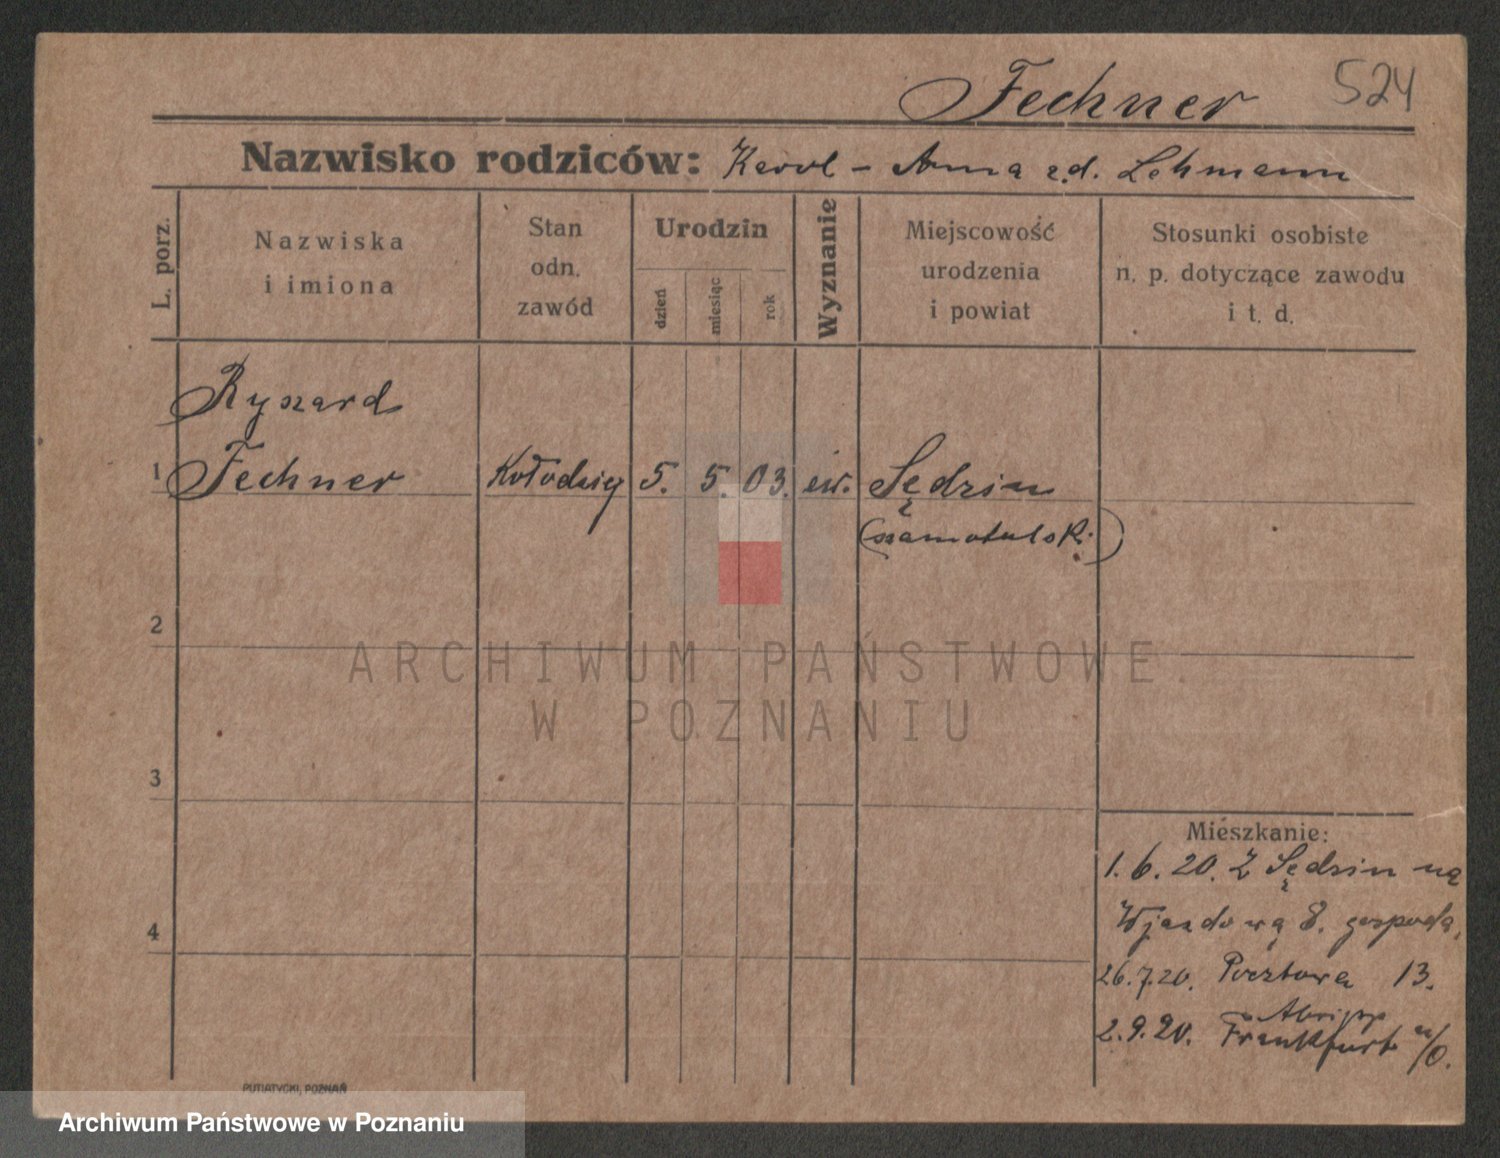 Fechner 524
Nazwisko rodziców: Karol - Anna z d. Lehmann
L. porz.
Nazwiska
i imiona
Stan
odn.
zawód
Urodzin
dzień
miesiąc
rok
Wyznanie
Miejscowość
urodzenia
i powiat
Stosunki osobiste
n. p. dotyczące zawodu
i t. d.
Ryszard
1 Fechner Kołodziej 5. 5. 03. ew. Sędzin
(szamotulski)
2
ARCHIWUM PAŃSTWOWE
W POZNANIU
3
Mieszkanie:
1.6.20. Z Sędzin na
Wjazdową 8. gospoda,
4
26.7.20. Pocztowa 13.
2.9.20. Frankfurt n/O.
PUTIATYCKI, POZNAŃ
Archiwum Państwowe w Poznaniu